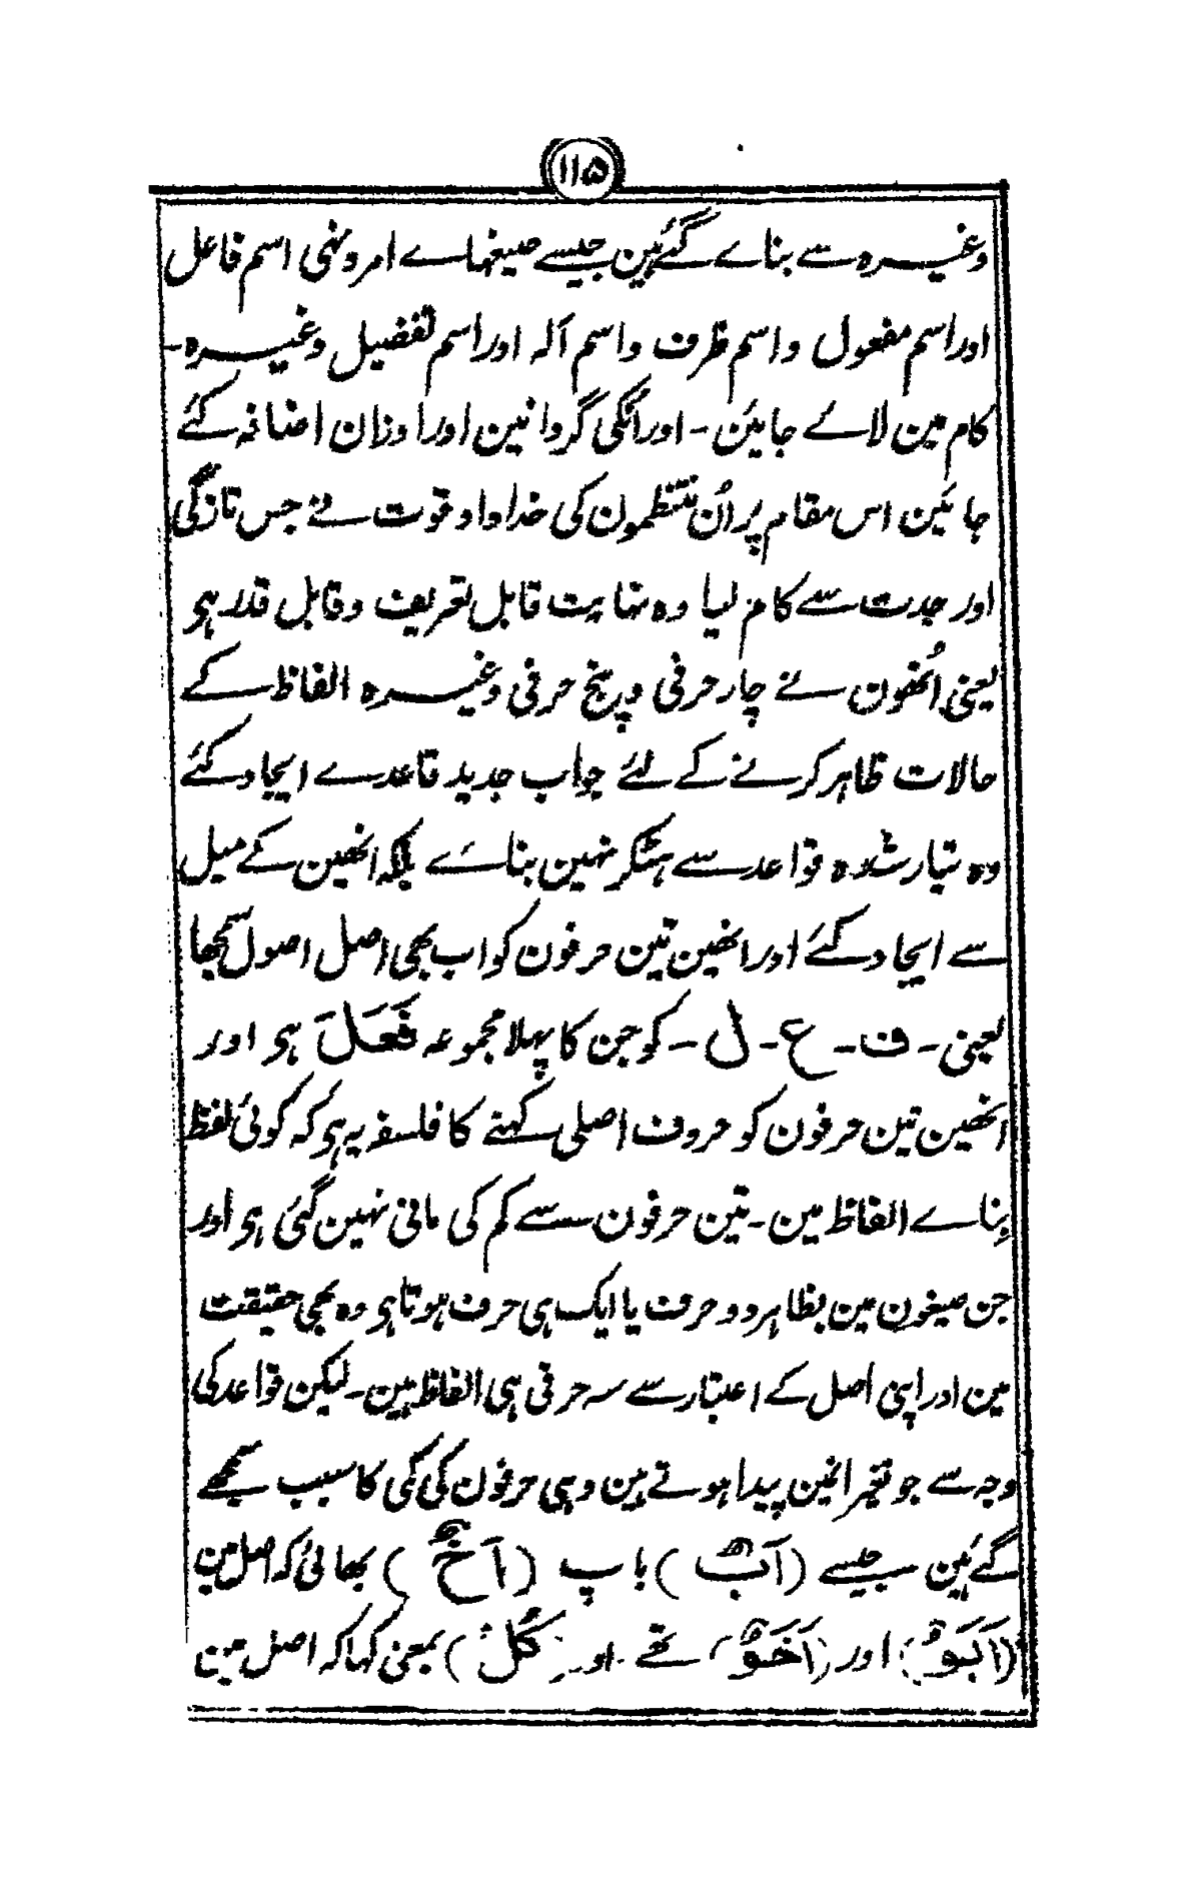 ۱۱۵
وغیرہ سے بناے گئے ہین جیسے صیغہاے امر ونہی اسم فاعل
اور اسم مفعول واسم ظرف واسم آلہ اور اسم تفضیل وغیرہ-
کام مین لاے جائین - اور انکی گردانین اور اوزان اضافہ کئے
جائین اس مقام پر اُن منتظمون کی خداداد قوت نے جس تازگی
اور جدت سے کام لیا وہ نہایت قابل تعریف وقابل قدر ہی
یعنی اُنھون نے چار حرفی و پنج حرفی وغیرہ الفاظ کے
حالات ظاہر کرنے کے لئے جو اب جدید قاعدے ایجاد کئے
وہ تیار شدہ قواعد سے ہٹکر نہین بناے بلکہ انھین کے میل
سے ایجاد کئے اور انھین تین حرفون کو اب بھی اصل اصول سمجھا
یعنی - ف - ع - ل - کو جن کا پہلا مجموعہ فَعَلَ ہی اور
انھین تین حرفون کو حروف اصلی کہنے کا فلسفہ یہ ہی کہ کوئی لفظ
بناے الفاظ مین - تین حرفون سے کم کی مانی نہین گئی ہی اور
جن صیغون مین بظاہر دو حرف یا ایک ہی حرف ہوتا ہی وہ بھی حقیقت
مین اور اپنی اصل کے اعتبار سے سہ حرفی ہی الفاظ ہین - لیکن قواعد کی
وجہ سے جو تغیر انمین پیدا ہوتے ہین وہی حرفون کی کمی کا سبب سمجھے
گئے ہین جیسے (اَبٌ) باپ (اَخٌ) بھائی کہ اصل مین
(اَبَوٌ) اور (اَخَوٌ) تھے اور (کُلْ) بمعنی کہا کہ اصل مین